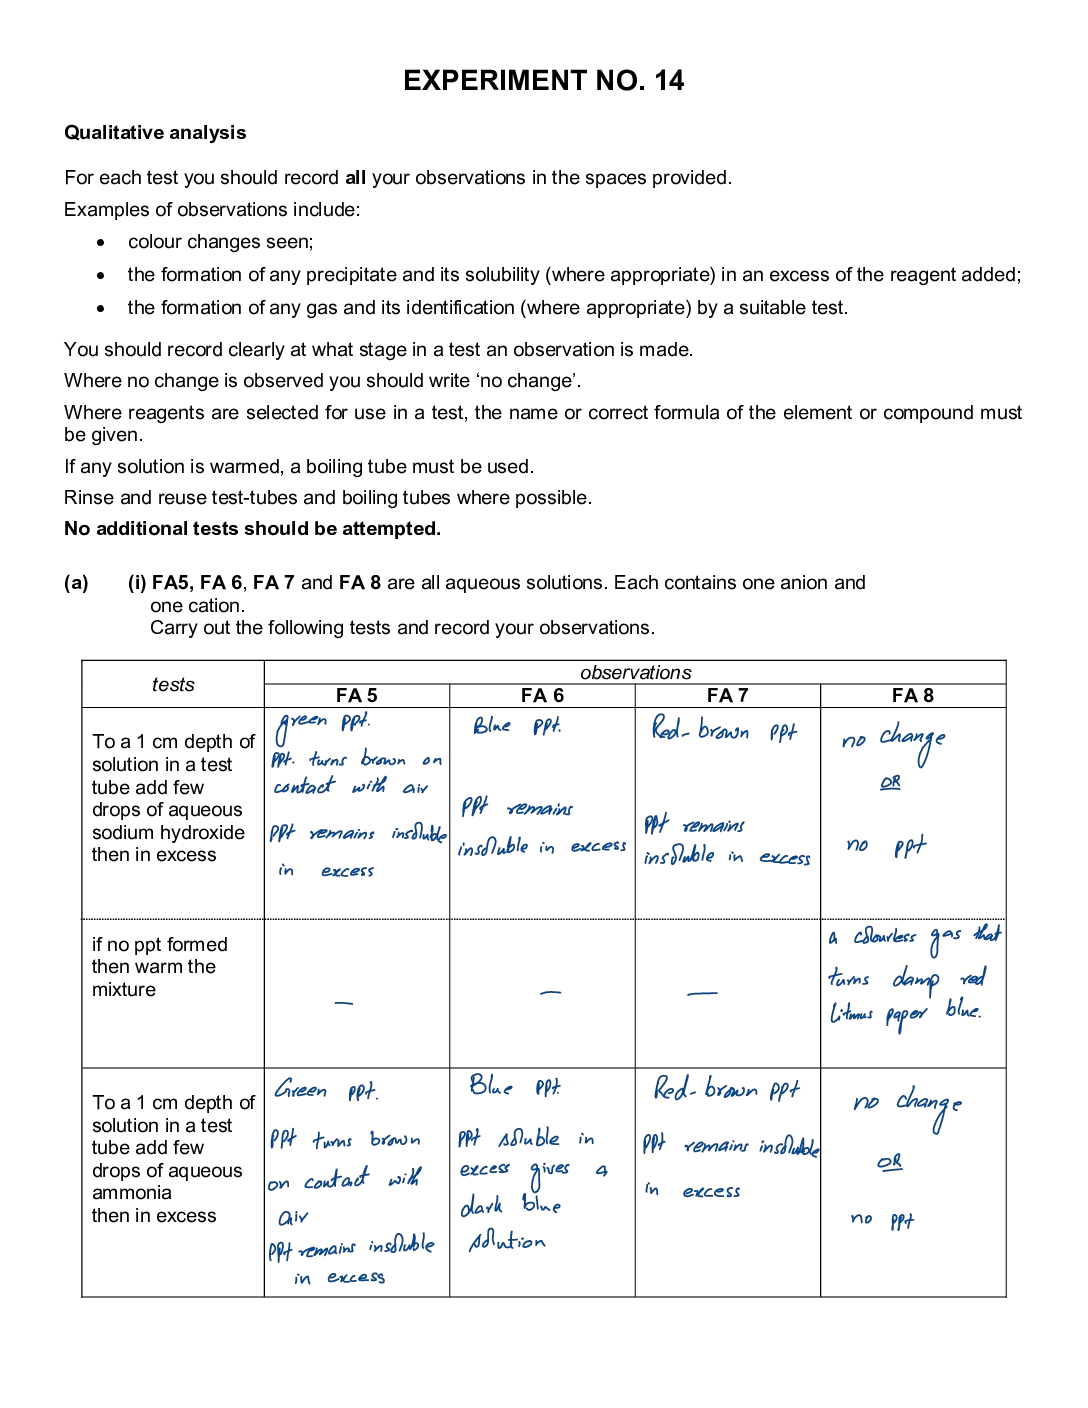 EXPERIMENT NO. 14
Qualitative analysis
For each test you should record all your observations in the spaces provided.
Examples of observations include:
• colour changes seen;
• the formation of any precipitate and its solubility (where appropriate) in an excess of the reagent added;
• the formation of any gas and its identification (where appropriate) by a suitable test.
You should record clearly at what stage in a test an observation is made.
Where no change is observed you should write ‘no change’.
Where reagents are selected for use in a test, the name or correct formula of the element or compound must
be given.
If any solution is warmed, a boiling tube must be used.
Rinse and reuse test-tubes and boiling tubes where possible.
No additional tests should be attempted.
(a) (i) FA5, FA 6, FA 7 and FA 8 are all aqueous solutions. Each contains one anion and
one cation.
Carry out the following tests and record your observations.
tests
observations
FA 5 FA 6 FA 7 FA 8
To a 1 cm depth of
solution in a test
tube add few
drops of aqueous
sodium hydroxide
then in excess
green ppt.
ppt. turns brown on
contact with air
ppt remains insoluble
in excess
Blue ppt.
ppt remains
insoluble in excess
Red-brown ppt
ppt remains
insoluble in excess
no change
OR
no ppt
if no ppt formed
then warm the
mixture
—
—
—
a colourless gas that
turns damp red
litmus paper blue.
To a 1 cm depth of
solution in a test
tube add few
drops of aqueous
ammonia
then in excess
Green ppt.
ppt turns brown
on contact with
air
ppt remains insoluble
in excess
Blue ppt.
ppt soluble in
excess gives a
dark blue
solution
Red-brown ppt
ppt remains insoluble
in excess
no change
OR
no ppt